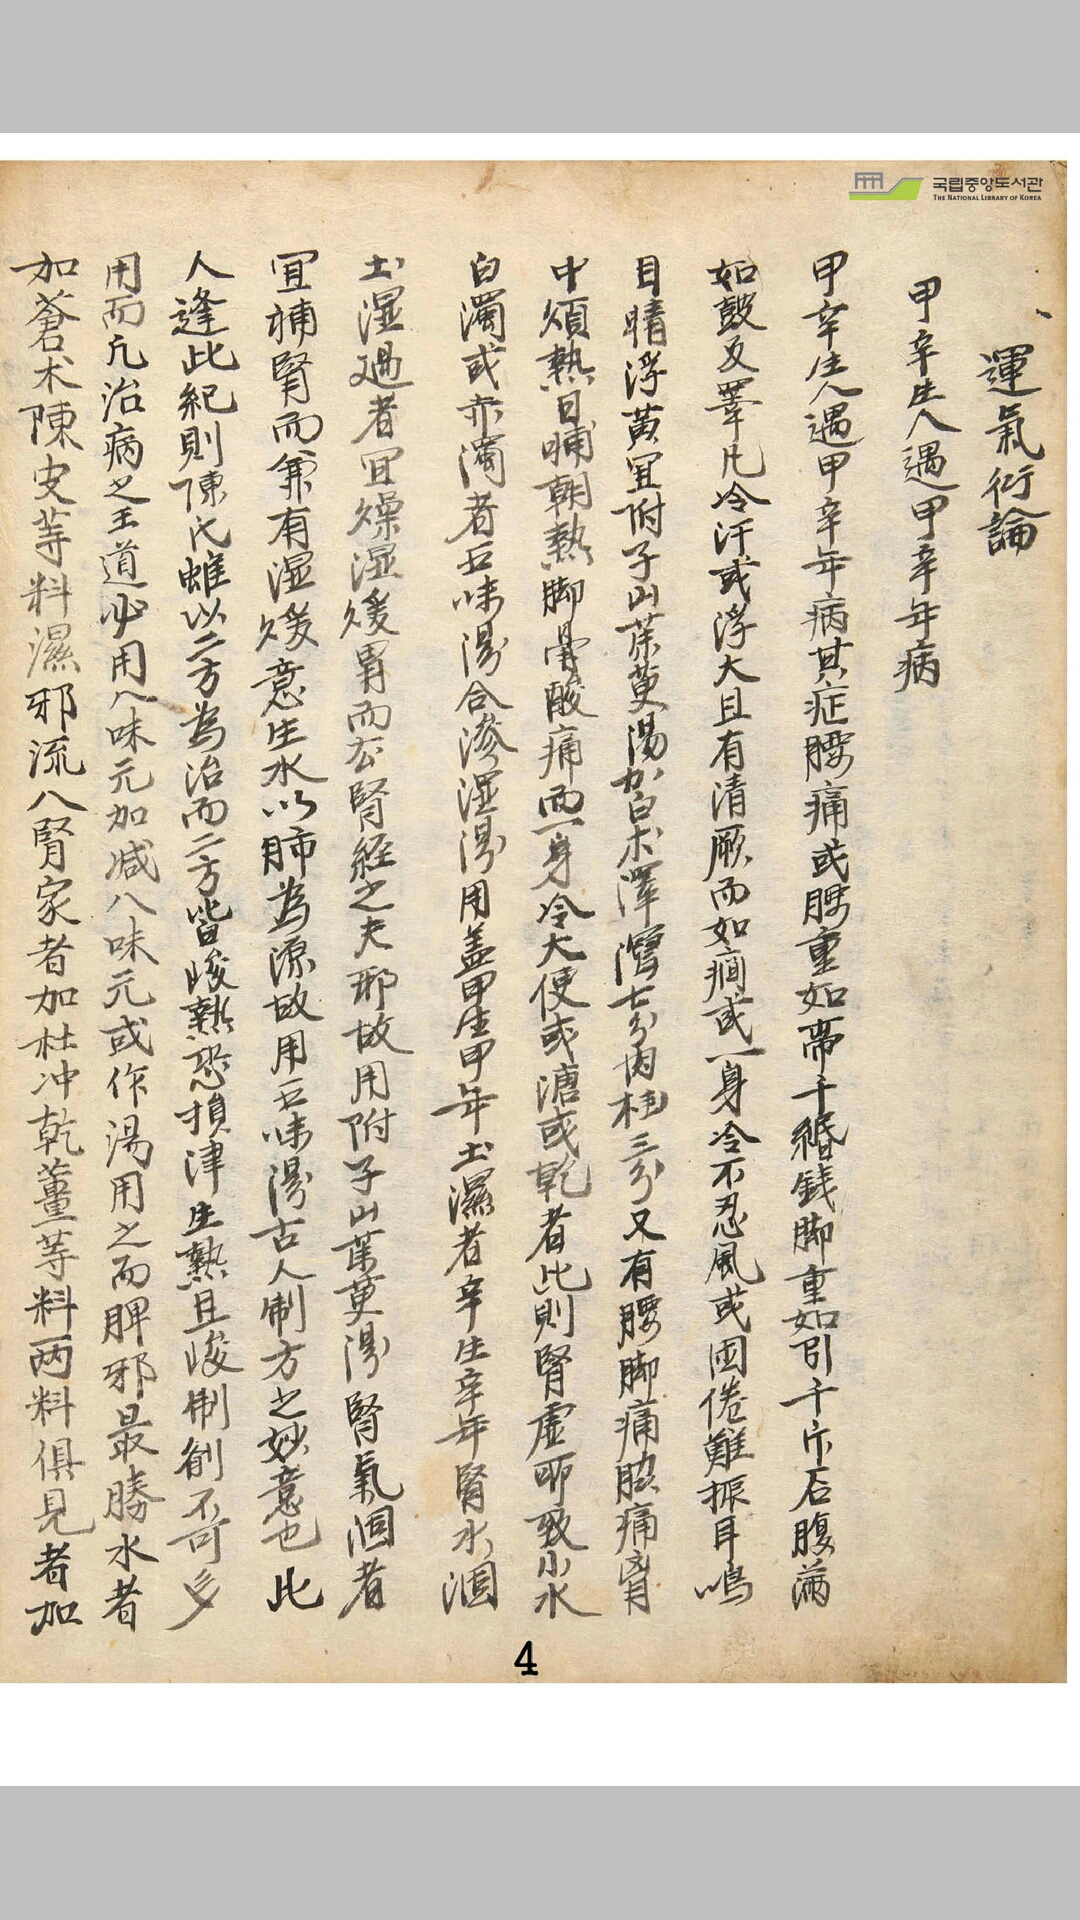 국립중앙도서관
THE NATIONAL LIBRARY OF KOREA
運氣衍論
甲辛生人遇甲辛年病
甲辛生人遇甲辛年病其症腰痛或腰重如帶千緡錢脚重如引千斤石腹滿
如皷及睾凡冷汗或浮大且有清厥而如癎或一身冷不忍風或困倦難振耳鳴
目睛浮黃宜附子山茱萸湯加白朮澤瀉七分肉桂三分又有腰脚痛肱痛腎
中煩熱日晡朝熱脚骨酸痛而一身冷大便或溏或乾者此則腎虛所致小水
白濁或赤濁者五味湯合滲湿湯用盖甲生甲年土濕者辛生辛年腎水涸
土湿過者宜燥湿煖胃而玄腎経之夫邪故用附子山茱萸湯腎氣涸者
宜補腎而兼有湿煖意生水以肺為源故用五味湯古人制方之妙意也此
人逢此紀則陳氏雖以二方為治而二方皆峻熱恐損津生熱且峻制創不可多
用而凡治病之王道必用八味元加减八味元或作湯用之而脾邪最勝水者
加蒼朮陳皮等料濕邪流八腎家者加杜冲乾薑等料两料俱見者加
4